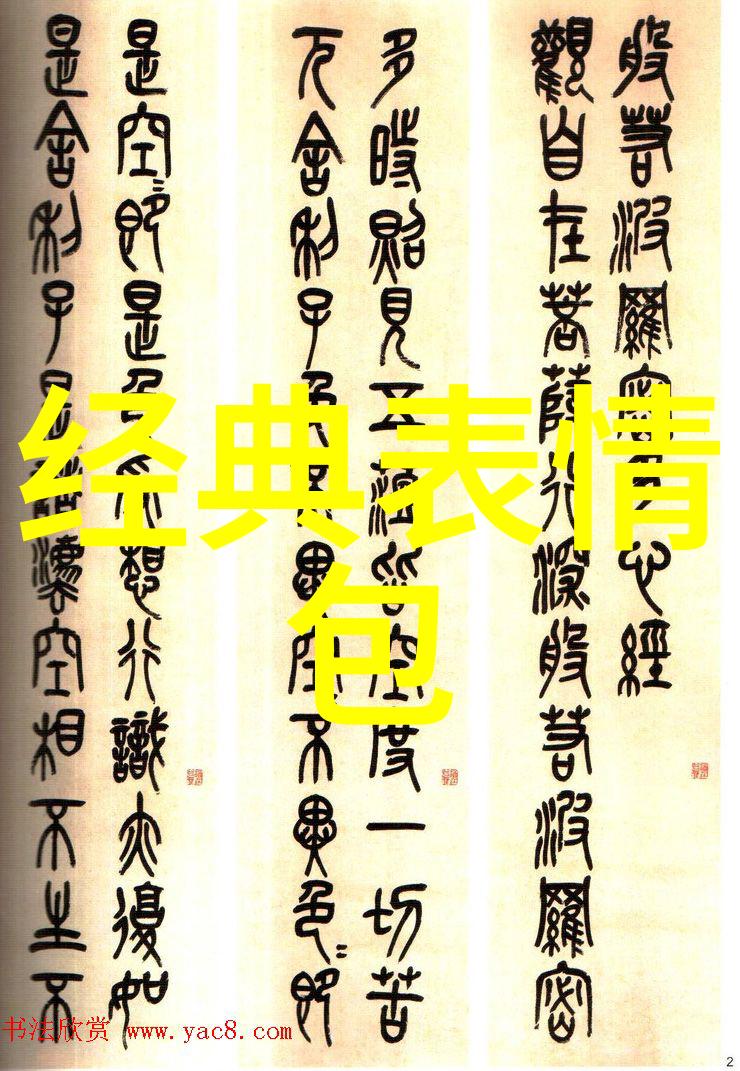 般若波羅密多心經
觀自在菩薩行深般若波羅密
多時照見五蘊皆空度一切苦
厄舍利子色不異空不異色〻即
是空〻即是色受想行識亦復如
是舍利子是諸灋空相不生不
经典表情
包
书法欣赏 www.yac8.com
2